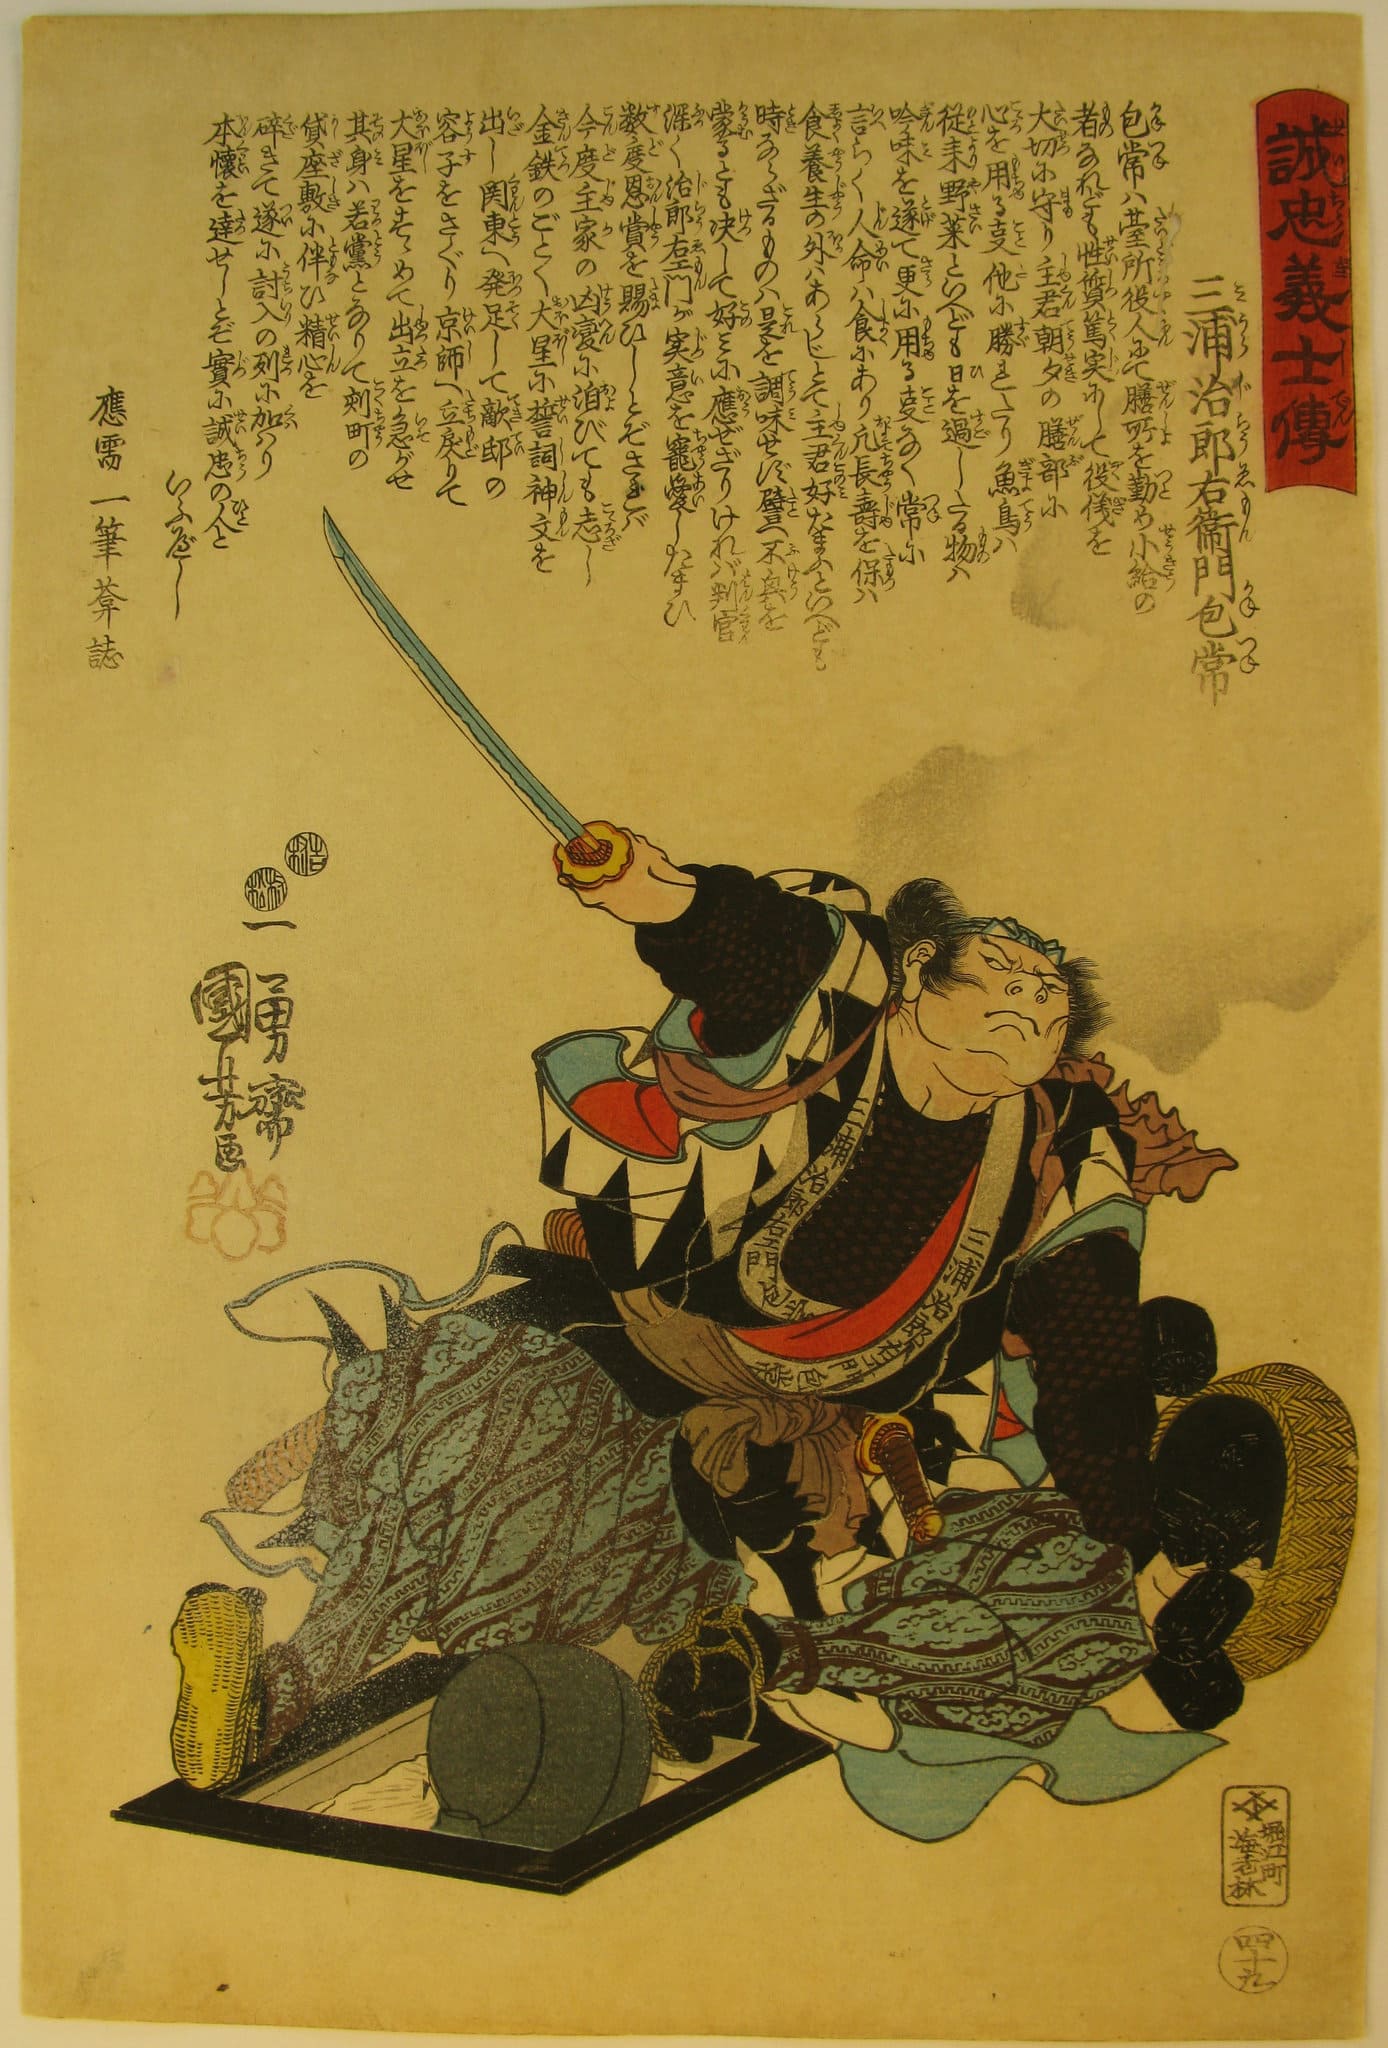 誠忠義士傳
三浦治郎右衛門包常
包常ハ臺所役人にて膳所を勤め小給の
者なれども性質篤実にして役儀を
大切に守り主君朝夕の膳部に
心を用る支他に勝れたり魚鳥ハ
従来野菜といへども日を過したる物ハ
吟味を遂て更に用る支なく常に
言らく人命ハ食にあり凡長壽を保ハ
食養生の外ハあらじとて主君好たまふといへども
時ならざるものハ是を調味せず譬へ不興を
蒙るとも決して好に應ぜざりけれバ判官
深く治郎右エ門が実意を寵愛したまひ
数度恩賞を賜ひしとぞされバ
今度主家の凶變に泊びても志し
金鉄のごとく大星に誓詞神文を
出し関東へ発足して敵邸の
容子をさぐり京師へ立戻りて
大星をすゝめて出立を急がせ
其身ハ若黨となりて刻町の
貸座敷に伴ひ精心を
碎きて遂に討入の列に加ハり
本懐を達せしとぞ實に誠忠の人と
いふべし
應需一筆葊誌
一勇齋
國芳画
三浦治郎右エ門包常
三浦治郎右エ門包常
堀江町
海老林
四十九